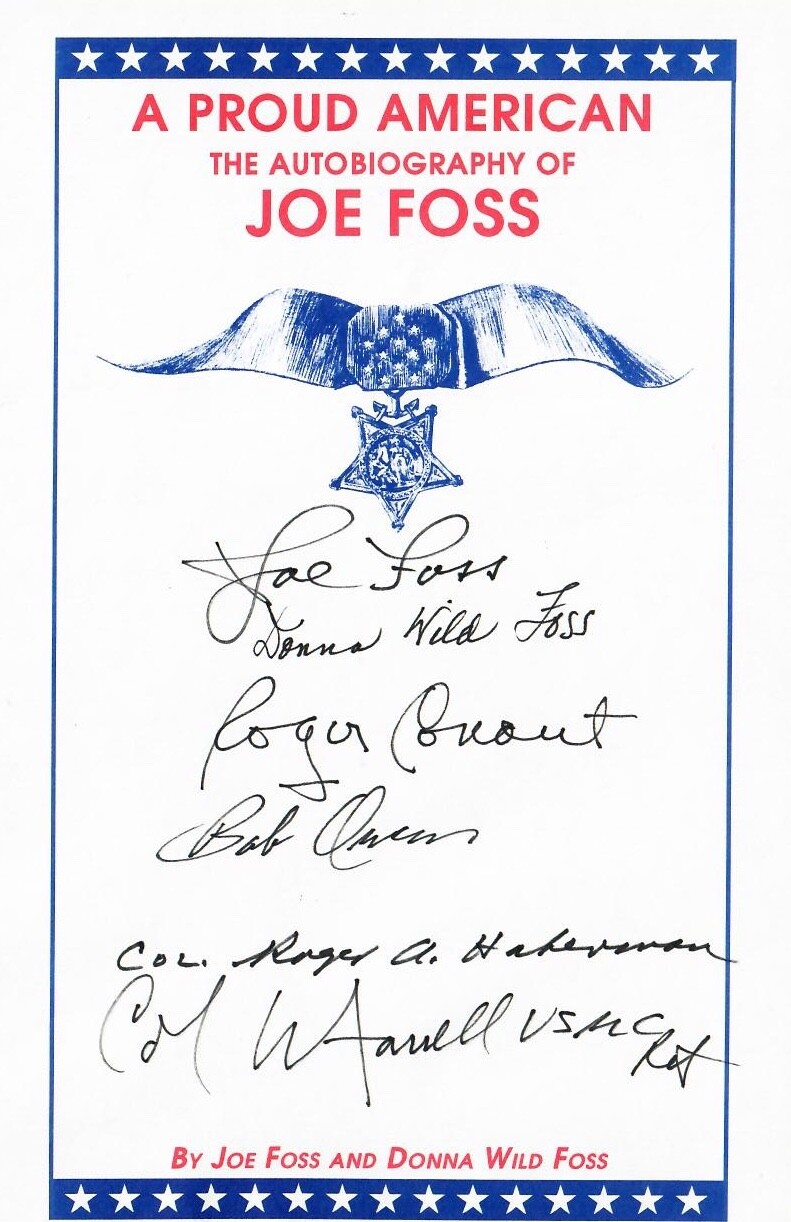 A PROUD AMERICAN
THE AUTOBIOGRAPHY OF
JOE FOSS
Joe Foss
Donna Wild Foss
Roger Conant
Bob Owens
COL. Roger A. Haberman
Col W Farrell USMC
Ret
BY JOE FOSS AND DONNA WILD FOSS